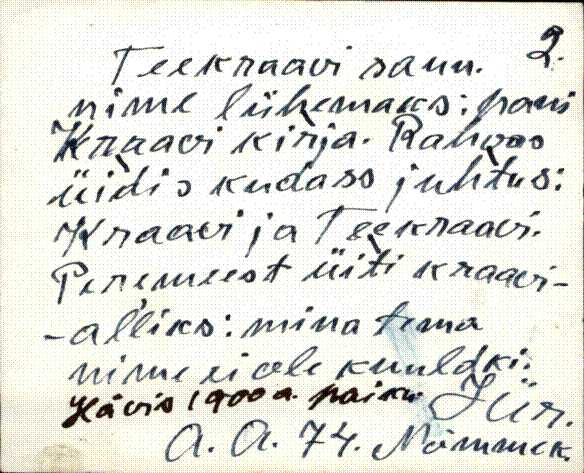 2.
Teekraavi saun.
nime lühemaks: pani
Kraavi kirja. Rahvas
üidis kudass juhtus:
Kraavi ja Teekraavi.
Peremeest üiti kraavi-
-alliks: mina tema
nime ei ole kuuldki.
Hävis 1900 a. paiku. Jür.
A. A. 74. Nõmmek.